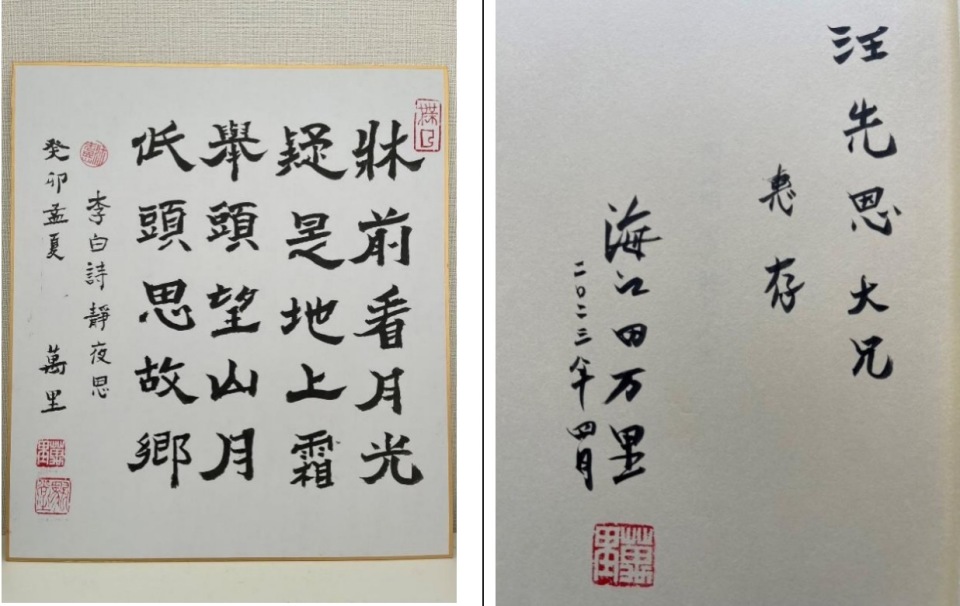 牀前看月光
疑是地上霜
舉頭望山月
低頭思故鄉
李白詩靜夜思
癸卯孟夏 萬里
汪先恩大兄
惠存
海江田万里
二〇二三年四月